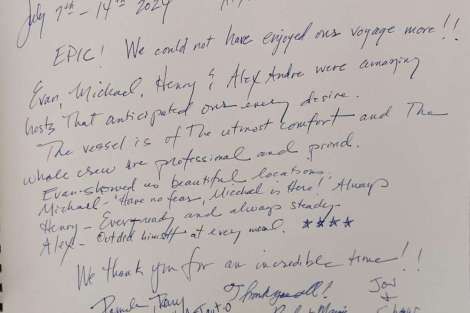 July 7th - 14th 2024
EPIC! We could not have enjoyed our voyage more!!
Evan, Michael, Henry & Alex Andre were amazing
hosts That anticipated our every desire.
The vessel is of The utmost comfort and The
whole crew are professional and proud.
Evan-showed us beautiful locations.
Michael- 'Have no fear, Micheal is Here! Always
Henry - Ever ready and always steady.
Alex - Outdid himself at every meal. ****
We thank you for an incredible time!!
Pamela Terry Thank you all! Jon
&